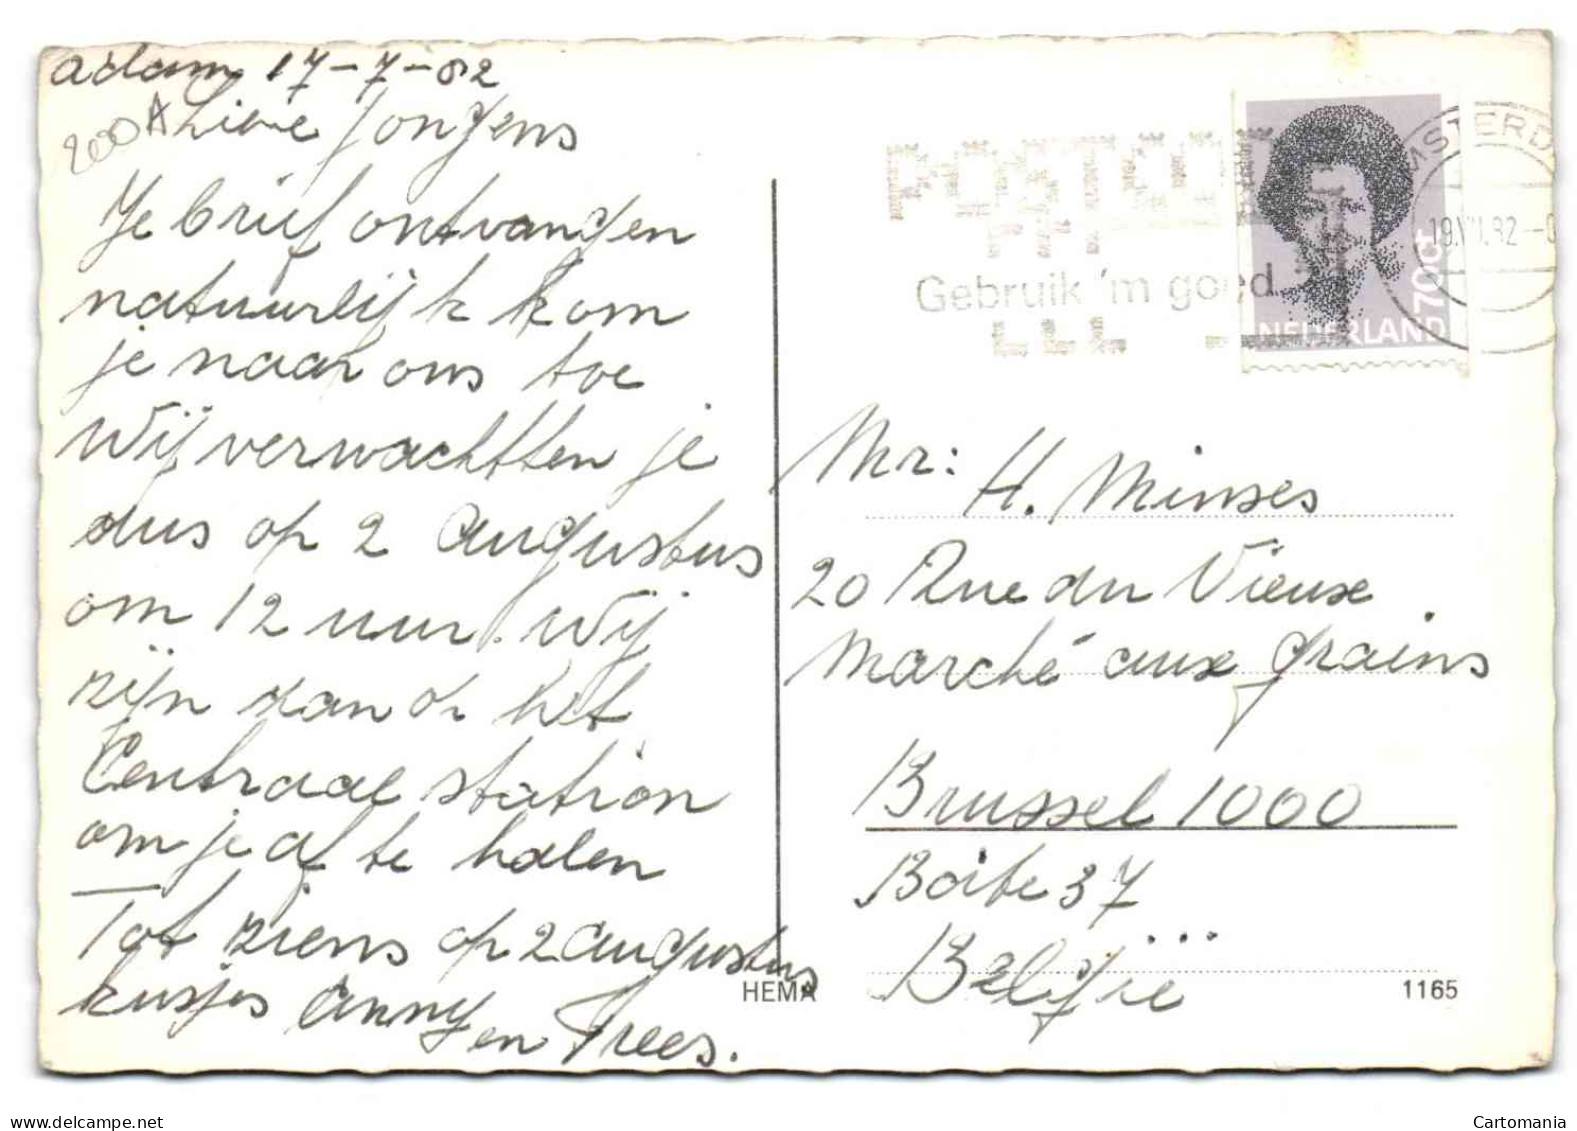 adam 17-7-82
200A
Lieve Jongens
Je brief ontvangen
natuurlijk kom
je naar ons toe
Wij verwachtten je
dus op 2 augustus
om 12 uur. Wij
zijn dan op het
Centraal station
om je af te halen
Tot ziens op 2 augustus
kusjes Anny en Trees.
HEMA
Gebruik 'm goed.
70ct
NEDERLAND
19.VII.82
Mr: H. Minses
20 Rue du Vieux
Marché aux grains
Brussel 1000
Boite 37
België
1165
www.delcampe.net
Cartomania